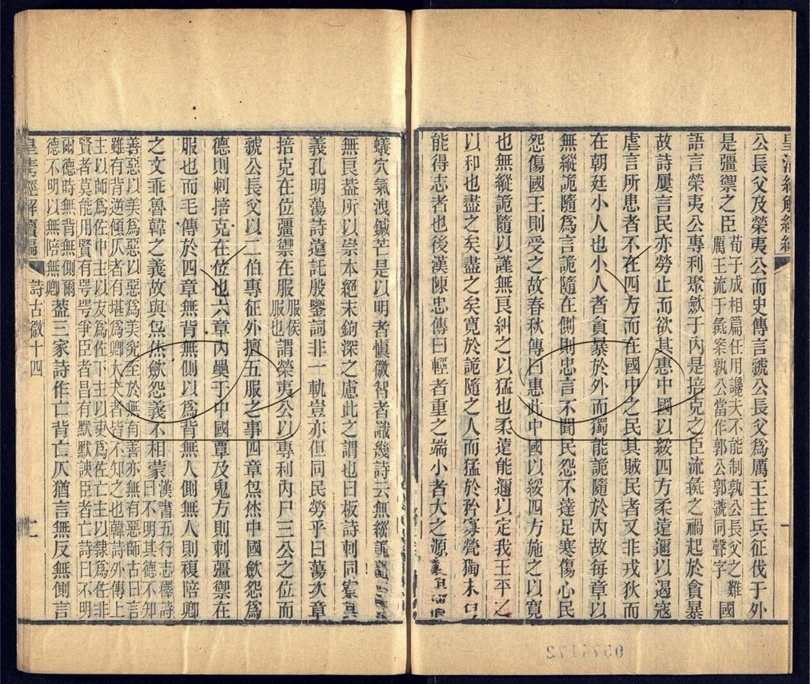 公長父及榮夷公而史傳言虢公長父爲厲王主兵征伐于外
是彊禦之臣荀子成相篇任用讒夫不能制孰公長父之難國
厲王流于彘案孰公當作郭公郭虢同聲字
語言榮夷公專利聚斂于內是掊克之臣流彘之禍起於貪暴
故詩屢言民亦勞止而欲其惠中國以綏四方柔遠邇以遏寇
虐言所患者不在四方而在國中之民其賊民者又非戎狄而
在朝廷小人也小人者貪暴於外而獨能詭隨於內故每章以
無縱詭隨爲言詭隨在側則忠言不聞民怨不達足寒傷心民
怨傷國王則受之故春秋傳曰惠此中國以綏四方施之以寬
也無縱詭隨以謹無良糾之以猛也柔遠能邇以定我王平之
以和也盡之矣盡之矣寬於詭隨之人而猛於矜寡煢獨未
能得志者也後漢陳忠傳曰輕者重之端小者大之源
蟻穴氣洩鍼芒是以明者愼微智者識幾詩云無縱詭
無良蓋所以崇本絕末鉤深之慮此之謂也曰板詩刺同寮
義孔明蕩詩遠託殷鑒詞非一軌豈亦但同民勞乎曰蕩次章
掊克在位彊禦在服服侯
服也謂榮夷公以專利內尸三公之位而
虢公長父以二伯專征外擅五服之事四章炰烋中國斂怨爲
德則刺掊克在位也六章內奰于中國覃及鬼方則刺彊禦在
服也而毛傳於四章無背無側以爲背無人側無人則複陪卿
之文乖魯韓之義故與炰烋斂怨義不相蒙漢書五行志釋詩
曰不明其德不知
善惡以美爲惡以惡爲美究至於無有善亦無有惡師古曰言
雖有背逆傾仄者有堪爲卿大夫者皆不知之也韓詩外傳上
主以師爲佐中主以友爲佐下主以吏爲佐亡主以隸爲佐非
賢者莫能用賢有諤諤爭臣者昌有默默諛臣者亡詩曰不明
爾德時無背無側爾
德不明以無陪無卿蓋三家詩作亡背亡仄猶言無反無側言
皇清經解續編
詩古微十四